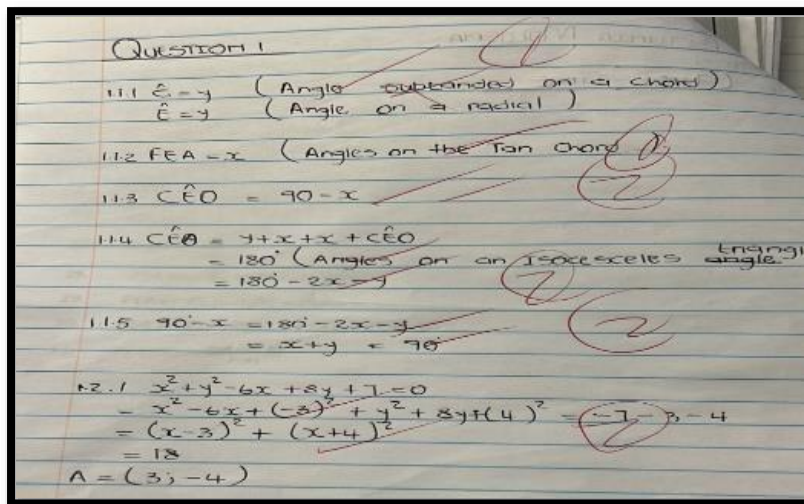 QUESTION 1
1.1.1 ê = y (Angle subtanded on a chord)
Ê = y (Angle on a radial)
1.1.2 FEA = x (Angles on the Tan Chord)
1.1.3 CÊO = 90 - x
1.1.4 CÊO = y + x + x + CÊO
= 180° (Angles on an Isocesceles triangle
= 180° - 2x - y
1.1.5 90° - x = 180° - 2x - y
= x + y = 90°
1.2.1 x² + y² - 6x + 8y + 7 = 0
= x² - 6x + (-3)² + y² + 8y + (4)² = -7 - 3 - 4
= (x-3)² + (x+4)²
= 18
A = (3; -4)